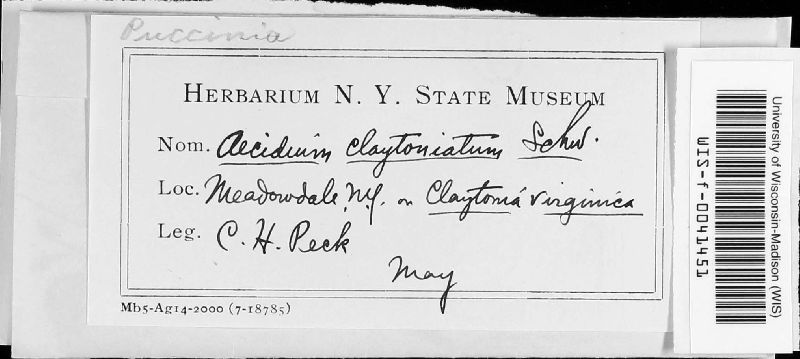 Puccinia
HERBARIUM N. Y. STATE MUSEUM
Nom. Aecidium claytoniatum Schw.
Loc. Meadowdale, N.Y. on Claytonia virginica
Leg. C. H. Peck
May
Mb5-Ag14-2000 (7-18785)
University of Wisconsin-Madison (WIS)
WIS-f-0041451